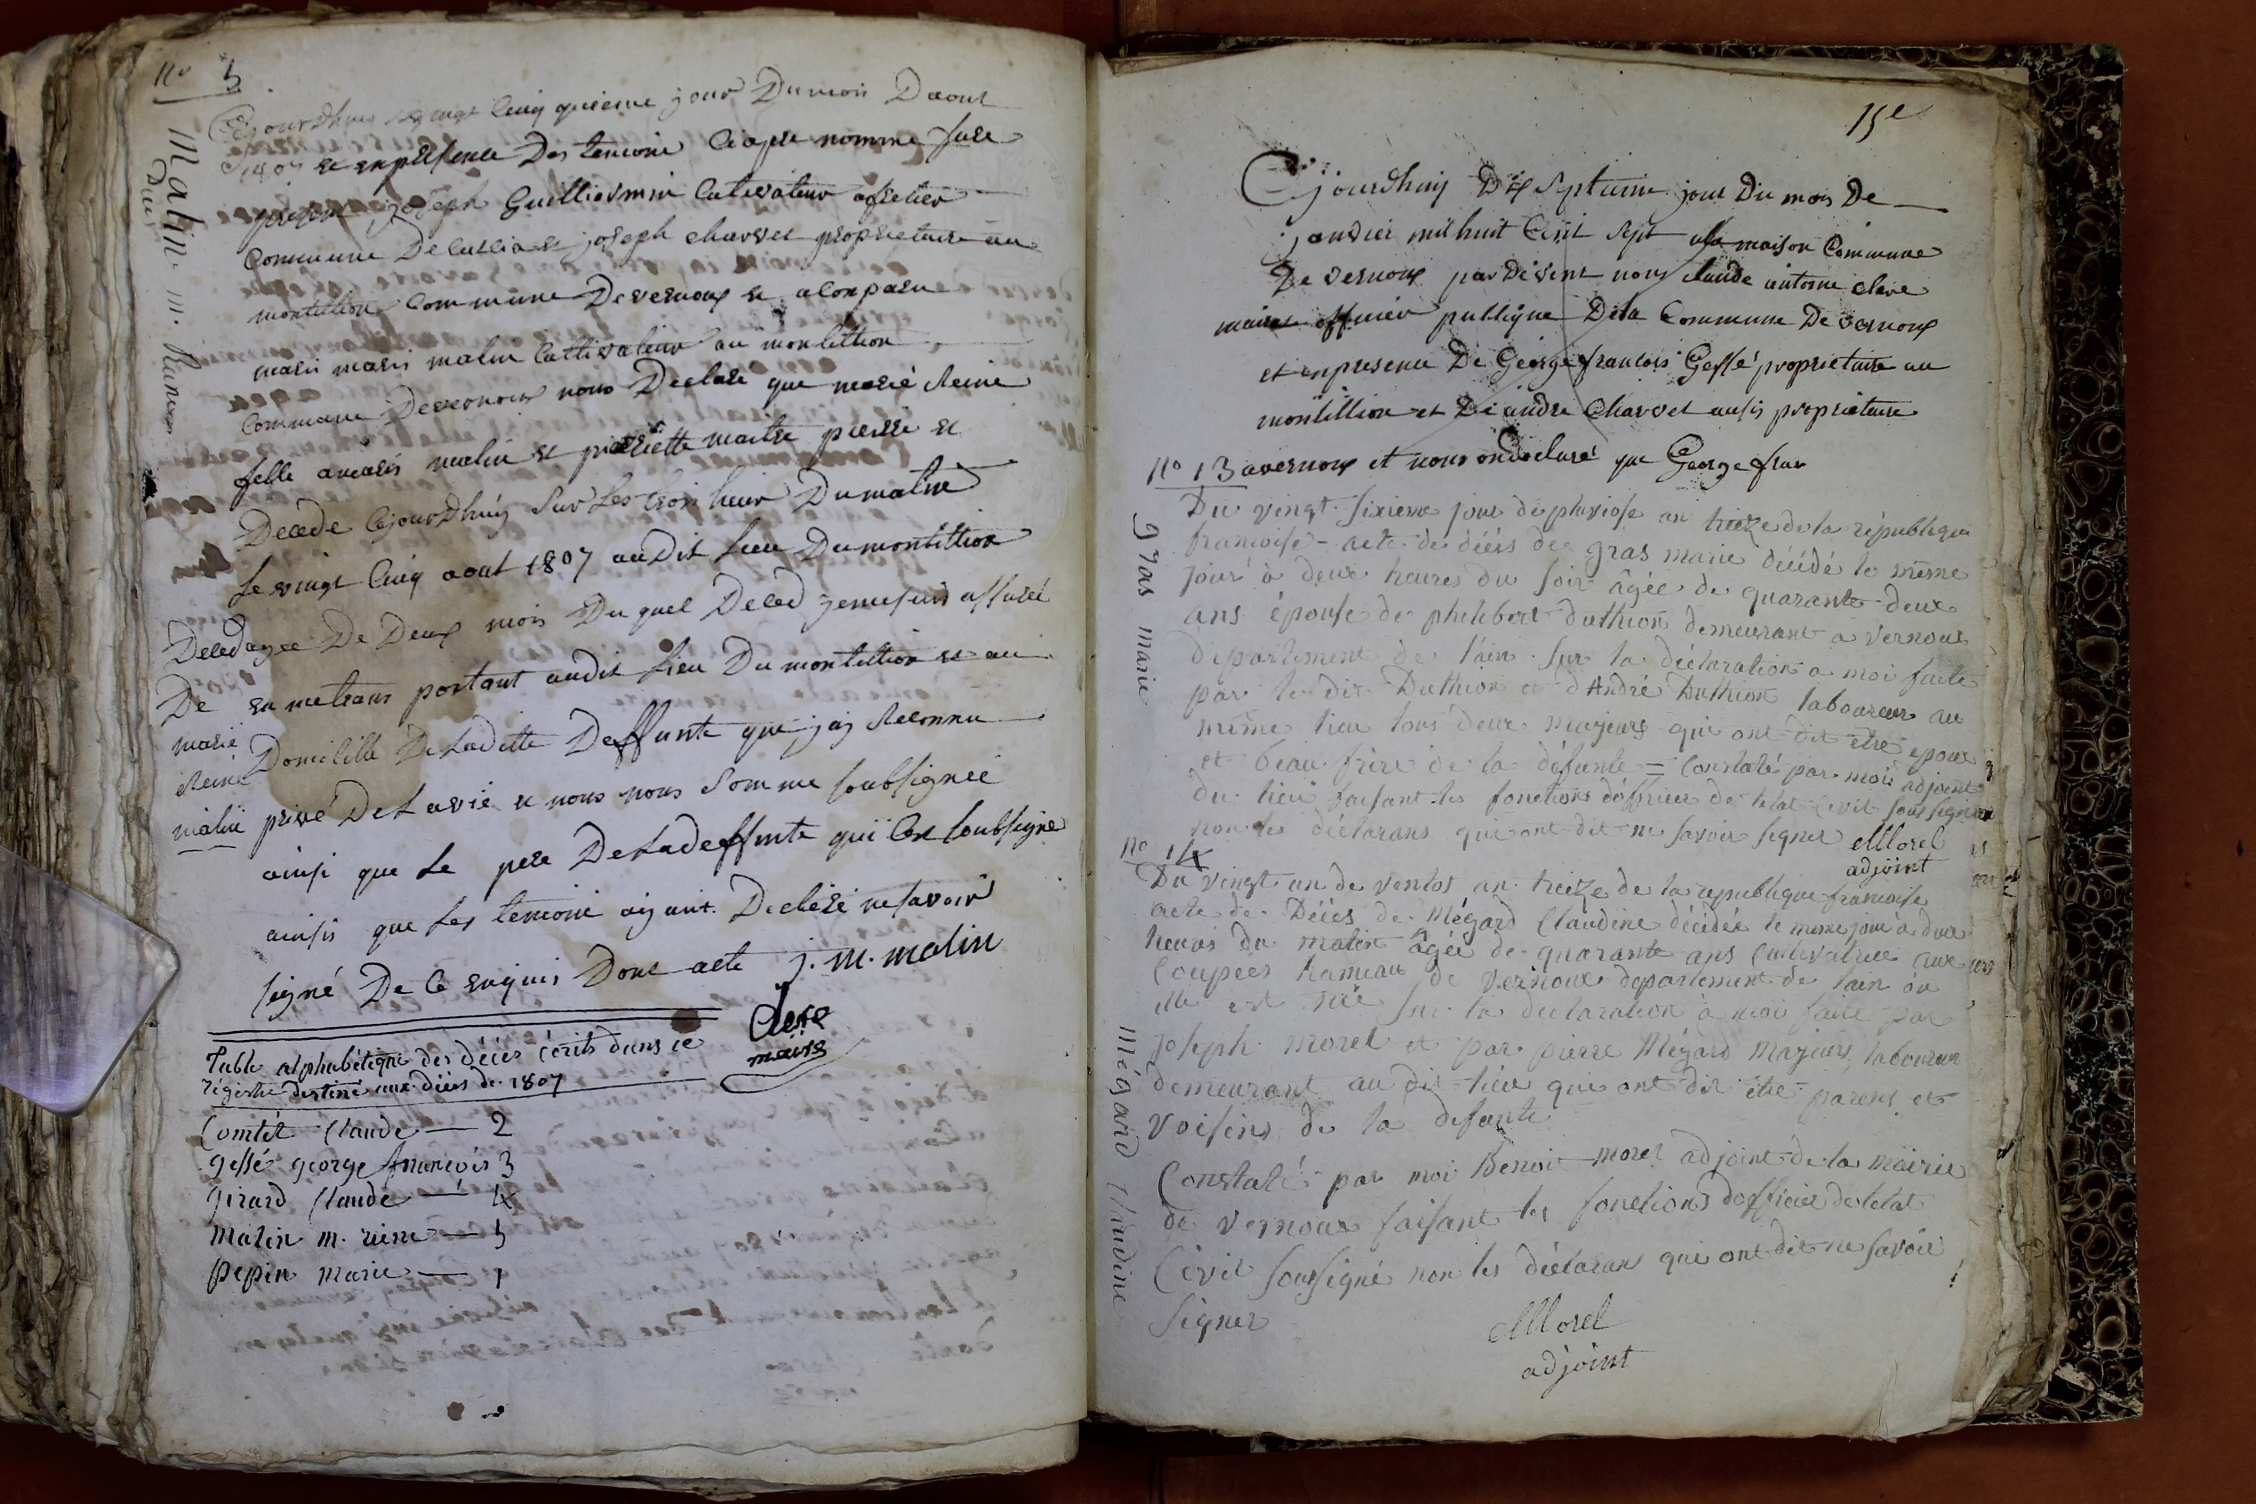 n° 5
Malin m. Reine
Cejourdhuy vingt Cinq quieme jour Dumois Daout
1807 et enpresence Des temoins Ciapre nomme
joseph Guilliermin Cutivateur
Commune De et joseph charvet proprietaire au
montillion Commune De vernoux et a Comparu
maris malin Cultivateur au montillion
Commune Devernoux nous Declare que marie Reine
felle a maris malin et pierrette maitre pierre et
Decede Cejourdhuy Sur Les trois heur Dumatin
Le vingt Cinq aout 1807 audit Lieu Dumontillion
Deced agee De Deux mois Du quel Deced jemesuis assuré
De en metrans portant audit Lieu Du montillion et au
marie Reine malin
Domicille De Laditte Deffunte que jaÿ Reconnu
privé DeLavie et nous nous Somme soubsignée
ainsi que Le pere DeLadeffunte qui Cest Soubsigne
ainsis que Les temoins aiyant Declere nesavoir
signé De Ce enquis Dont acte j. m. malin
Clere
maire
Table alphabétique des décès écrits dans ce
régistre destiné aux décès de 1807
Comtet Claude — 2
gessé george françois 3
girard Claude — 4
malin m. reine — 5
pepin marie — 1
15e
Cejourdhuy Dix Septieme jour Du mois De
janvier mil huit Cent Sept ala maison Commune
De vernoux par Devent nous claude antoine clere
maire officier publique Dela Commune De vernoux
et enpresence De George francois Gessé proprietaire au
montillion et De andre Charvet ausis proprietaire
avernoux et nous ondeclaré que George fran
n° 13
gras marie
Du vingt-sixieme jour de pluviose an treize de la république
francoise - acte de décès de gras marie décédé le même
jour à deux heures du soir âgée de quarante-deux
ans épouse de philibert duthion demeurant a vernoux
département de l'ain. Sur la déclaration a moi faite
par le dit Duthion et d'André Duthion laboureur au
même lieu tous deux majeurs qui ont dit être epoux
et beau frère de la défunte = Constaté par moi adjoint
du lieu faisant les fonctions d'officier de letat Civil soussigné
non les déclarans qui ont dit ne savoir signer Morel
adjoint
n° 14
Mégard Claudine
Du vingt un de ventos an treize de la republique francoise
acte de Décès de Mégard Claudine décédée le meme jour à deux
heures du matin âgée de quarante ans Cultivatrice aux
Coupées hameau de vernoux departement de lain où
elle est née Sur la declaration à moi faite par
Joseph morel et par pierre Mégard majeurs, laboureurs
demeurant au dit-lieu qui ont dit être parens et
voisins de la defunte
Constaté par moi Benoit morel adjoint de la mairie
de vernoux faisant les fonctions d'officier de letat
Civil soussigné non les déclarans qui ont dit ne savoir
signer
Morel
adjoint